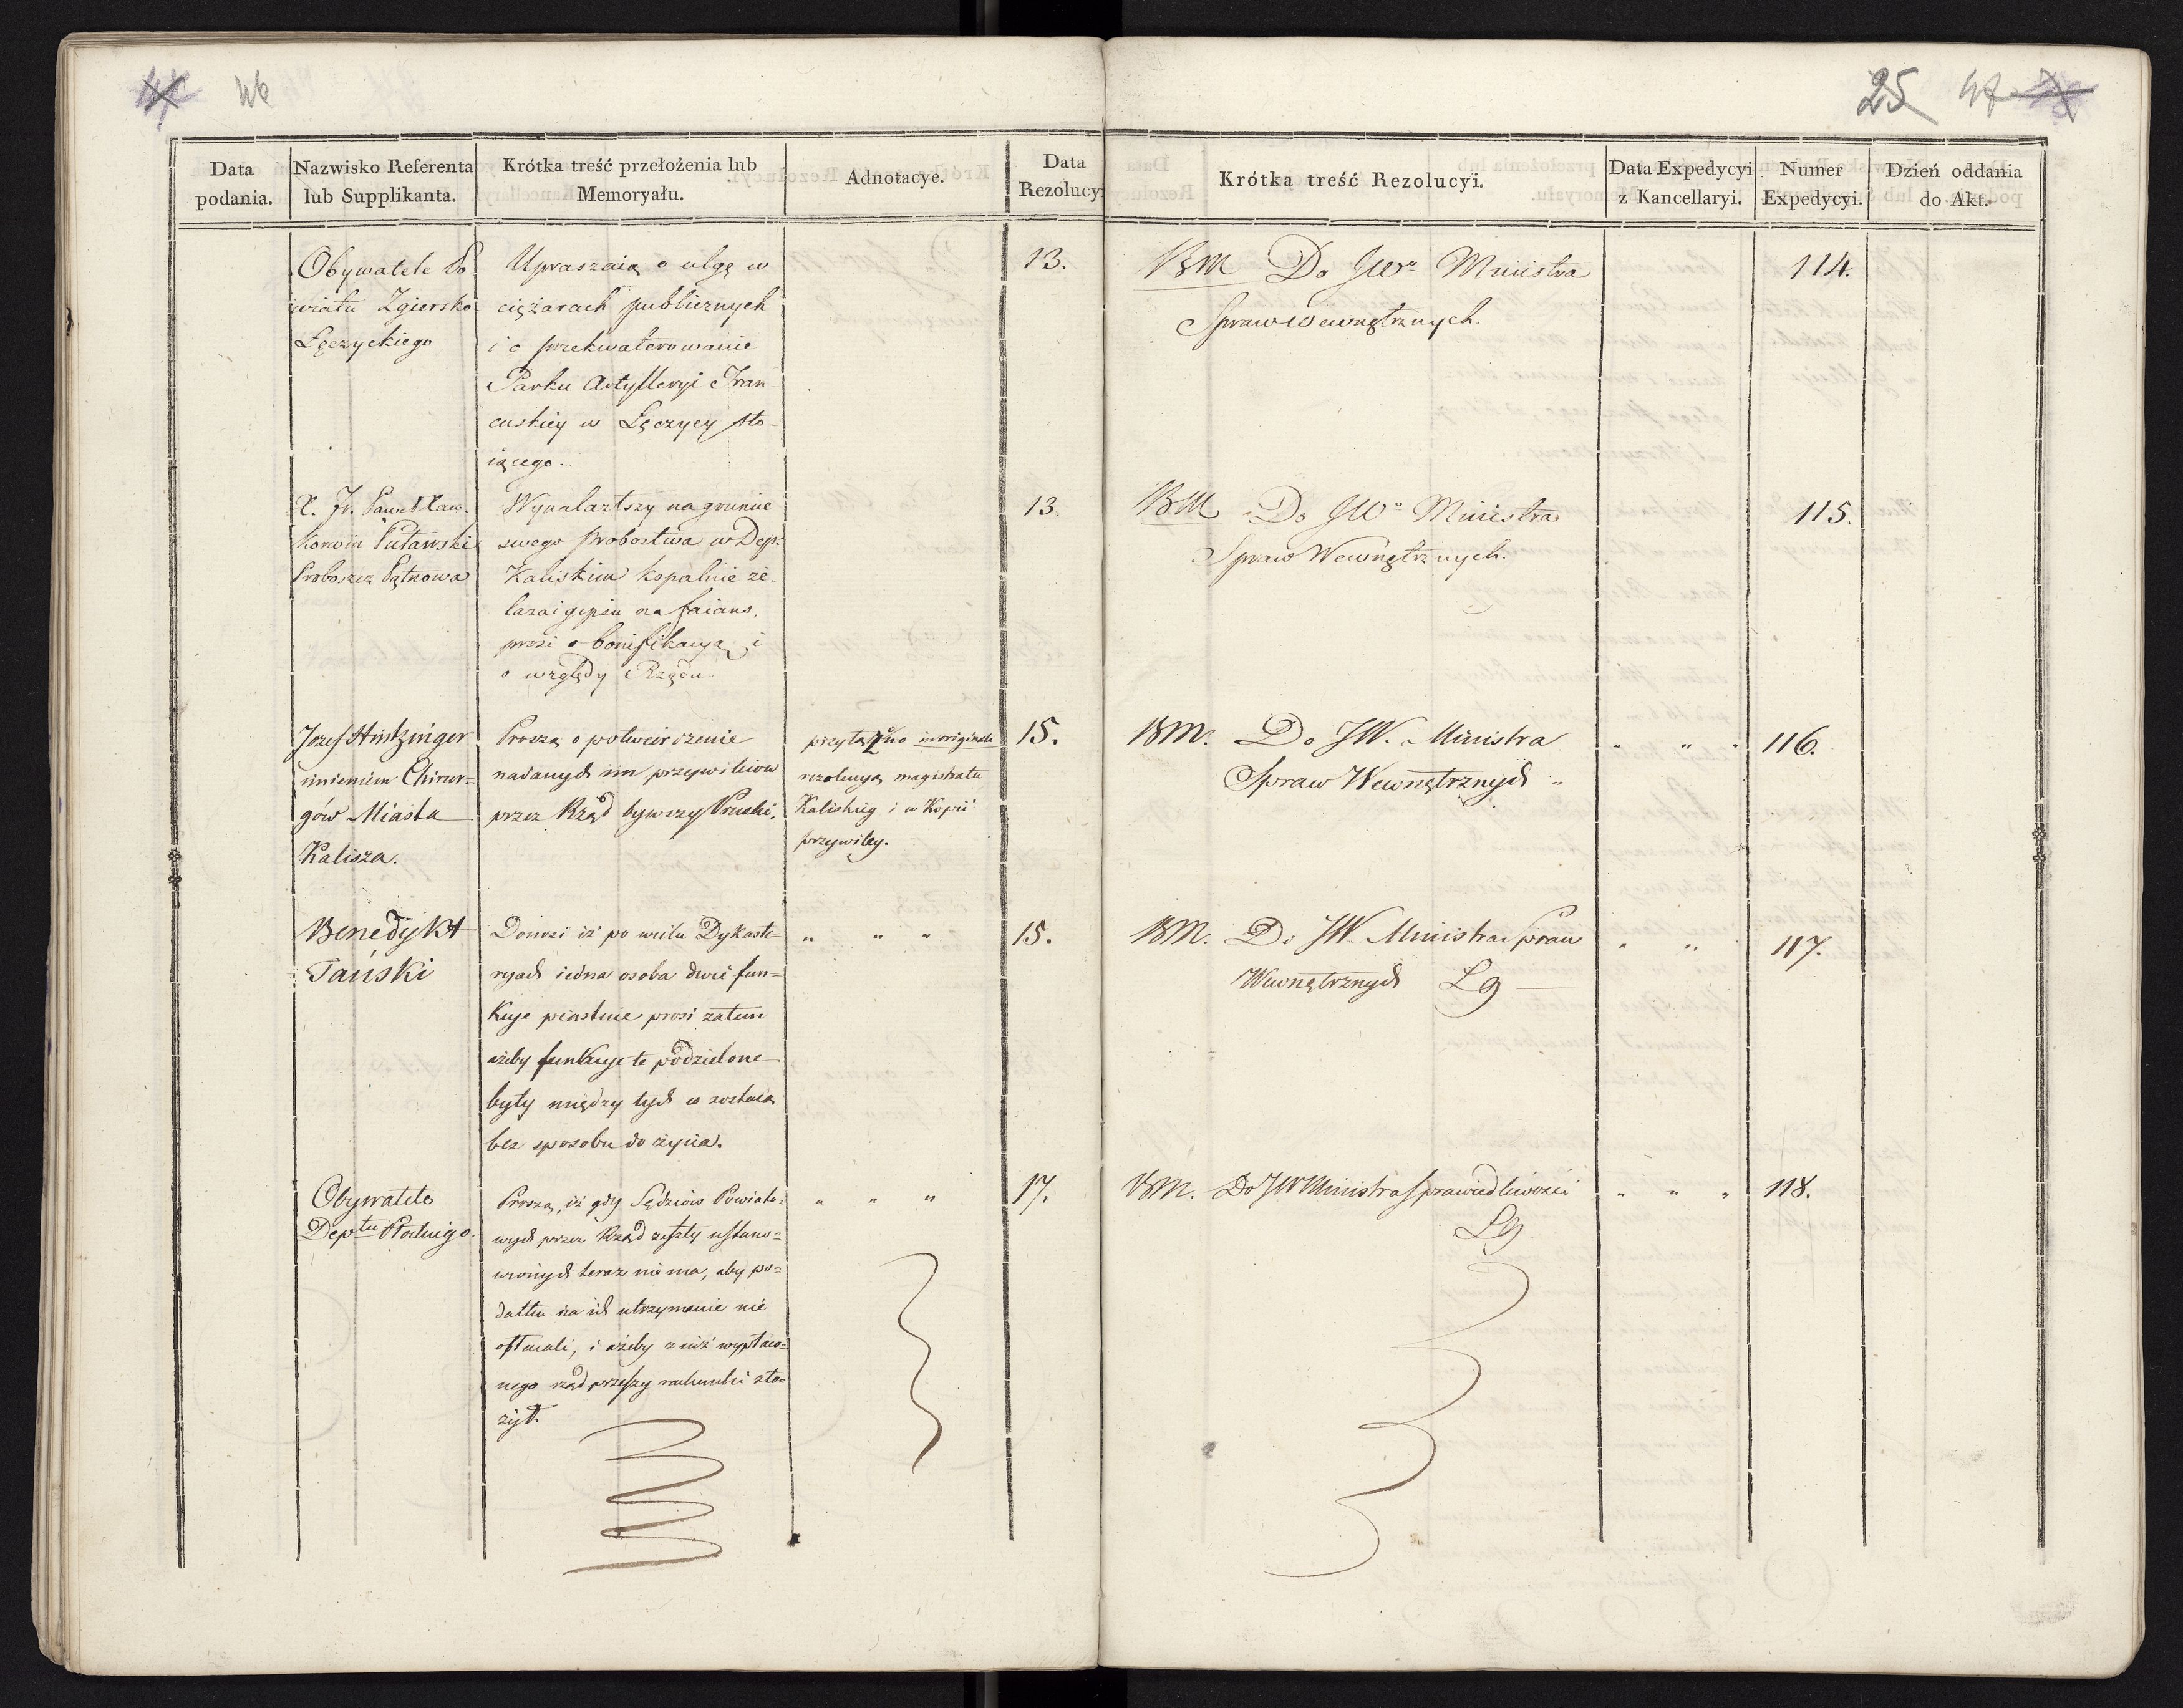 46
25 47
Data podania.
Nazwisko Referenta lub Supplikanta.
Krótka treść przełożenia lub Memoryału.
Adnotacye.
Data Rezolucyi
Krótka treść Rezolucyi.
Data Expedycyi z Kancellaryi.
Numer Expedycyi.
Dzień oddania do Akt.
Obywatele Po
wiatu Zgiersko
Łęczyckiego
Upraszaią o ulgę w
ciężarach publicznych
i o przekwaterowanie
Parku Artylleryi Fran
cuskiey w Łęczycy sto-
iącego.
13.
BM Do JWo Ministra
Spraw Wewnętrznych.
114.
X. Fr. Paweł Xaw.
Korwin Pułaski
Proboszcz Pątnowa
Wynalazłszy na gruncie
swego probostwa w Dep:
Kaliskim kopalnie że-
laza i gipsu na faians,
prosi o bonifikacyą i
o względy Rządu.
13.
BM Do JWo Ministra
Spraw Wewnętrznych.
115.
Jozef Hintzinger
imieniem Chirur=
gów Miasta
Kalisza.
Proszą o potwierdzenie
nadanych im przywileiow
przez Rząd bywszy Pruski.
in originali
rezolucyą magistratu
Kaliskiey i w Kopii
przywiley.
15.
BM. Do JW. Ministra
Spraw Wewnętrznych "
" " "
116.
Benedykt
Tański
Donosi iż po wielu Dykaste=
ryach iedna osoba dwie fun=
kcye piastuie prosi zatem
ażeby funkcye te podzielone
były między tych co zostaią
bez sposobu do życia.
" " "
15.
BM. Do JW. Ministra Spraw
Wewnętrznych Lg —
" "
117.
Obywatele
Deptu Płockiego.
Proszą, iż gdy Sędziów Powiato=
wych przez Rząd zeszły ustano=
wionych teraz nie ma, aby po=
datku na ich utrzymanie nie
opłacali, i ażeby z iuż wypłaco=
nego rząd przeszły rachunki zło=
żył.
" " "
17.
BM. Do JW Ministra Sprawiedliwości
Lg.
" " "
118.